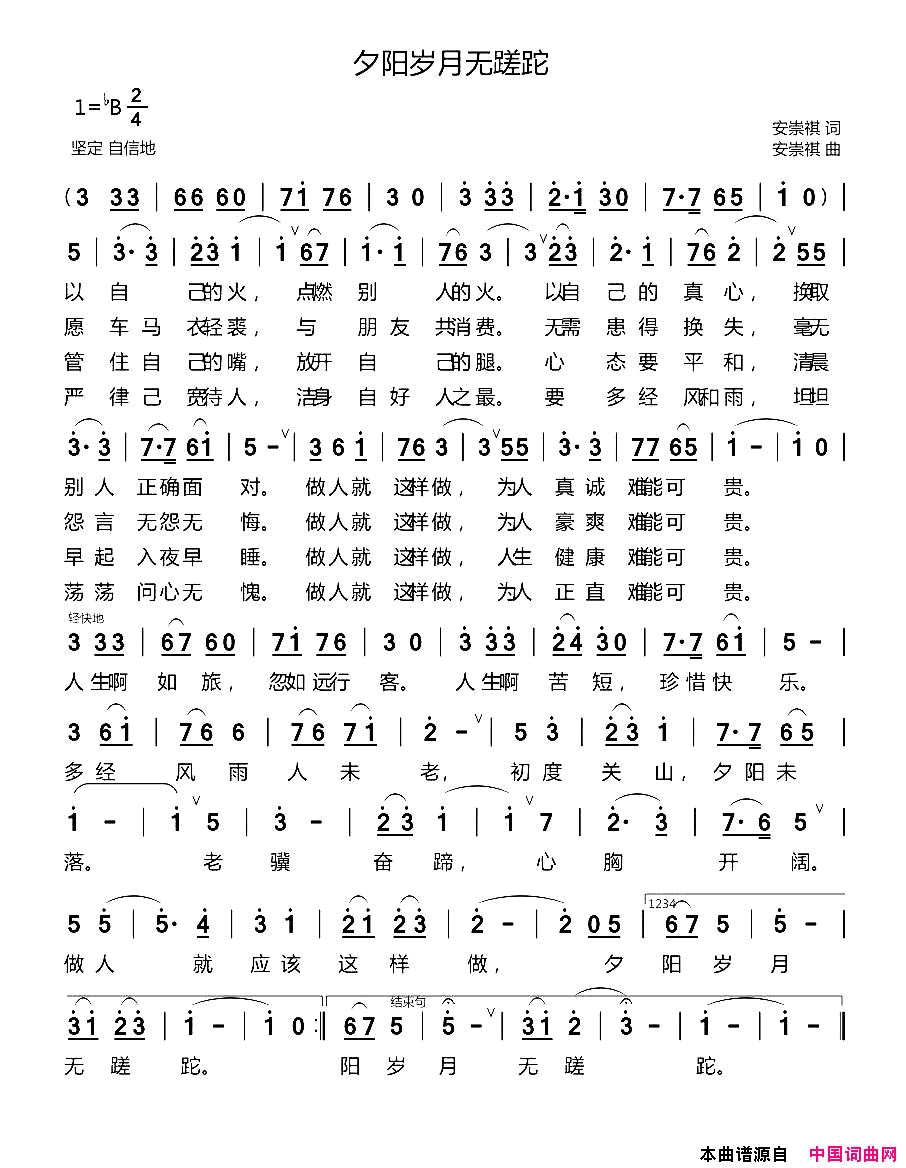 夕阳岁月无蹉跎
1=♭B 2/4
安崇祺 词
坚定 自信地
安崇祺 曲
(3 33 | 66 60 | 7i 76 | 30 | 3 33 | 2·1 30 | 7·7 65 | i 0) |
5 | 3·3 | 23 1 | 1 ∨67 | 1·1 | 76 3 | 3∨23 | 2·1 | 76 2 | 2∨55 |
以自己的火，点燃别人的火。以自己的真心，换取
愿车马衣轻裘，与朋友共消费。无需患得换失，毫无
管住自己的嘴，放开自己的腿。心态要平和，清晨
严律己宽待人，洁身自好人之最。要多经风和雨，坦坦
3·3 | 7·7 6i | 5 -∨ | 3 6 i | 76 3 | 3∨55 | 3·3 | 77 65 | i - | i 0 |
别人正确面对。做人就这样做，为人真诚难能可贵。
怨言无怨无悔。做人就这样做，为人豪爽难能可贵。
早起入夜早睡。做人就这样做，人生健康难能可贵。
荡荡问心无愧。做人就这样做，为人正直难能可贵。
轻快地
3 33 | 67 60 | 7i 76 | 3 0 | 3 33 | 24 30 | 7·7 6i | 5 - |
人生啊如旅，忽如远行客。人生啊苦短，珍惜快乐。
3 6i | 76 6 | 76 7i | 2 -∨ | 5 3 | 23 i | 7·7 65 |
多经风雨人未老，初度关山，夕阳未
i - | i∨5 | 3 - | 23 i | i∨7 | 2·3 | 7·6 5∨ |
落。老骥奋蹄，心胸开阔。
5 5 | 5·4 | 3 i | 2i 23 | 2 - | 2 05 | 1234 67 5 | 5 - |
做人就应该这样做，夕阳岁月
3i 23 | i - | i 0 :‖ 67 5 | 结束句 5 -∨ | 3i 2 | 3 - | i - | i - ‖
无蹉跎。阳岁月无蹉跎。
本曲谱源自 中国词曲网